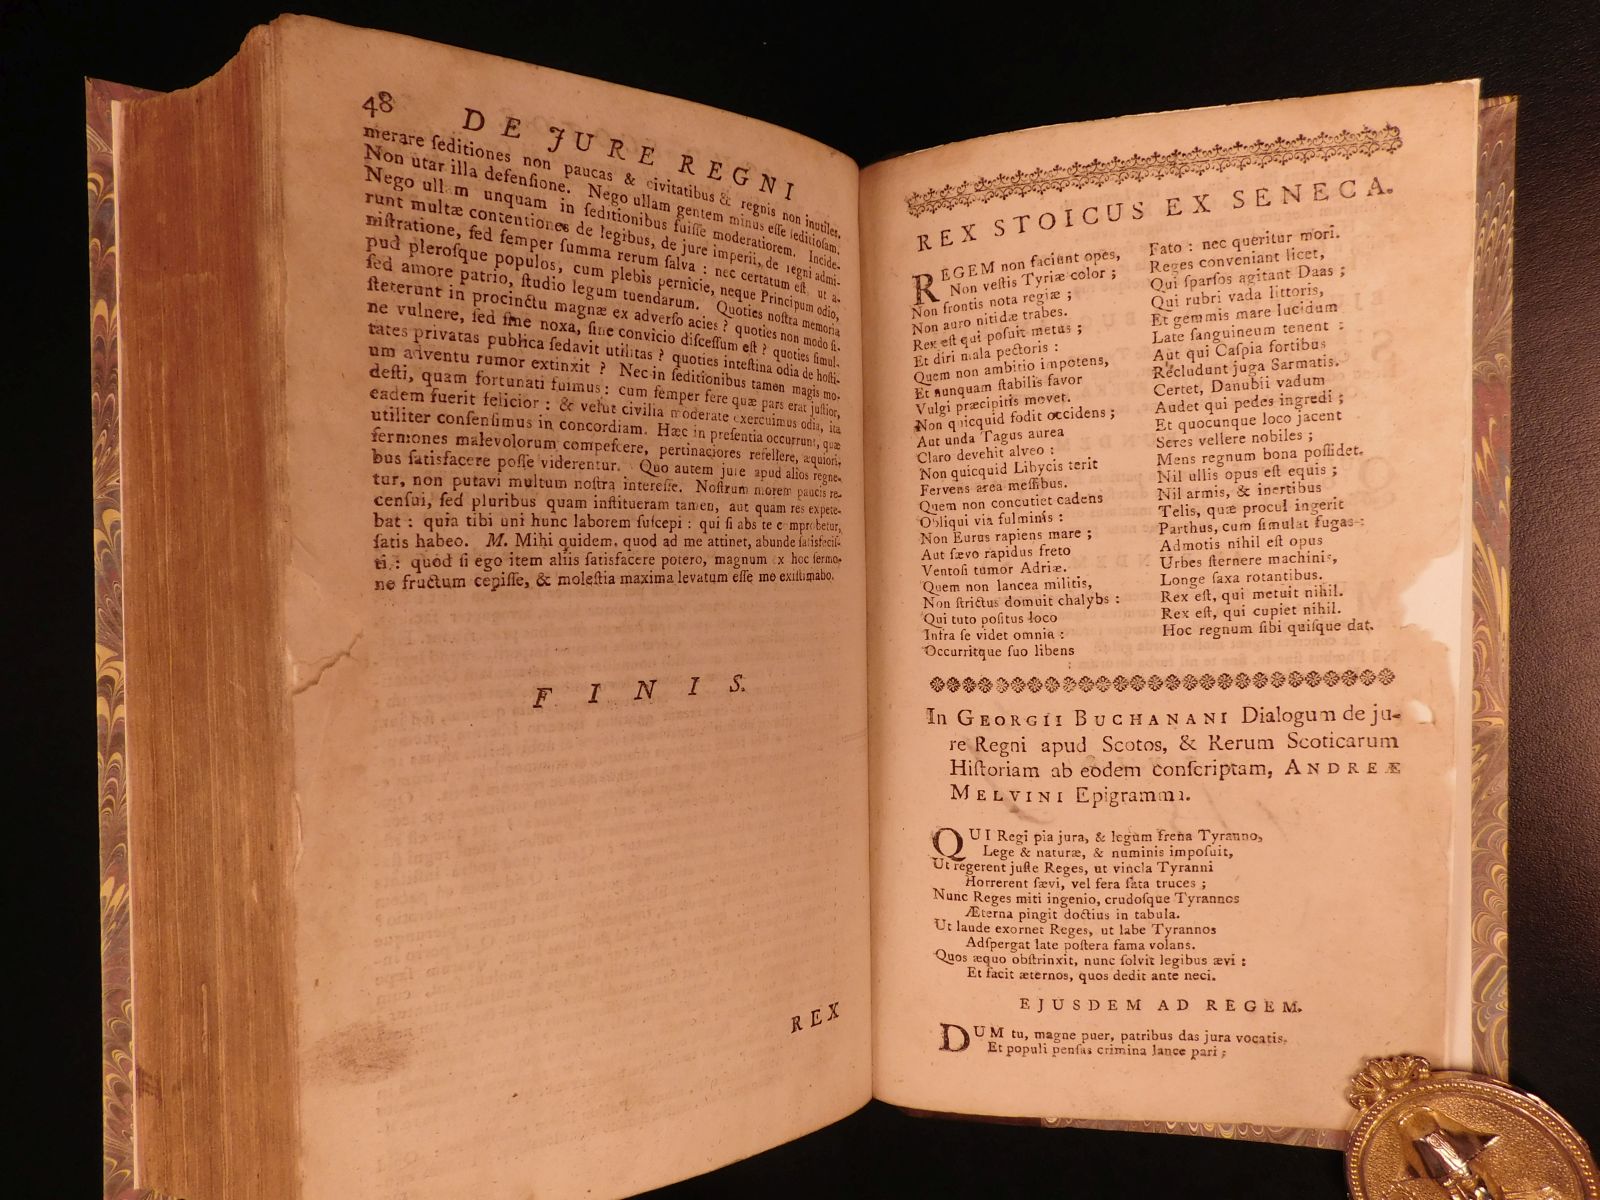 48
DE JURE REGNI
merare ſeditiones non paucas & civitatibus & regnis non inutiles.
Non utar illa defenſione. Nego ullam gentem minus eſſe ſeditioſam.
Nego ullam unquam in ſeditionibus fuiſſe moderatiorem. Incide-
runt multæ contentiones de legibus, de jure imperii, de regni admi-
niſtratione, ſed ſemper ſumma rerum ſalva : nec certatum eſt, ut a-
pud pleroſque populos, cum plebis pernicie, neque Principum odio,
ſed amore patrio, ſtudio legum tuendarum. Quoties noſtra memoria
ſteterunt in procinctu magnæ ex adverſo acies ? quoties non modo ſi-
ne vulnere, ſed ſine noxa, ſine convicio diſceſſum eſt ? quoties ſimul-
tates privatas publica ſedavit utilitas ? quoties inteſtina odia de hoſti-
um adventu rumor extinxit ? Nec in ſeditionibus tamen magis mo-
deſti, quam fortunati fuimus : cum ſemper fere quæ pars erat juſtior,
eadem fuerit felicior : & velut civilia moderate exercuimus odia, ita
utiliter conſenſimus in concordiam. Hæc in preſentia occurrunt, quæ
ſermones malevolorum compeſcere, pertinaciores refellere, æquiori-
bus ſatisfacere poſſe viderentur. Quo autem jure apud alios regne-
tur, non putavi multum noſtra intereſſe. Noſtrum morem paucis re-
cenſui, ſed pluribus quam inſtitueram tamen, aut quam res expete-
bat : quia tibi uni hunc laborem ſuſcepi : qui ſi abs te comprobetur,
ſatis habeo. M. Mihi quidem, quod ad me attinet, abunde ſatisfeciſ-
ti : quod ſi ego item aliis ſatisfacere potero, magnum ex hoc ſermo-
ne fructum cepiſſe, & moleſtia maxima levatum eſſe me exiſtimabo.
FINIS.
REX
REX STOICUS EX SENECA.
REGEM non faciunt opes,
Non veſtis Tyriæ color ;
Non frontis nota regiæ ;
Non auro nitidæ trabes.
Rex eſt qui poſuit metus ;
Et diri mala pectoris :
Quem non ambitio impotens,
Et nunquam ſtabilis favor
Vulgi præcipitis movet.
Non quicquid fodit occidens ;
Aut unda Tagus aurea
Claro devehit alveo :
Non quicquid Libycis terit
Fervens area meſſibus.
Quem non concutiet cadens
Obliqui via fulminis :
Non Eurus rapiens mare ;
Aut ſævo rapidus freto
Ventoſi tumor Adriæ.
Quem non lancea militis,
Non ſtrictus domuit chalybs :
Qui tuto poſitus loco
Infra ſe videt omnia :
Occurritque ſuo libens
Fato : nec queritur mori.
Reges conveniant licet,
Qui ſparſos agitant Daas ;
Qui rubri vada littoris,
Et gemmis mare lucidum
Late ſanguineum tenent :
Aut qui Caſpia fortibus
Recludunt juga Sarmatis.
Certet, Danubii vadum
Audet qui pedes ingredi ;
Et quocunque loco jacent
Seres vellere nobiles ;
Mens regnum bona poſſidet.
Nil ullis opus eſt equis ;
Nil armis, & inertibus
Telis, quæ procul ingerit
Parthus, cum ſimulat fugas :
Admotis nihil eſt opus
Urbes ſternere machinis,
Longe ſaxa rotantibus.
Rex eſt, qui metuit nihil.
Rex eſt, qui cupiet nihil.
Hoc regnum ſibi quiſque dat.
In GEORGII BUCHANANI Dialogum de ju-
re Regni apud Scotos, & Rerum Scoticarum
Hiſtoriam ab eodem conſcriptam, ANDREÆ
MELVINI Epigramma.
QUI Regi pia jura, & legum frena Tyranno,
Lege & naturæ, & numinis impoſuit,
Ut regerent juſte Reges, ut vincla Tyranni
Horrerent ſævi, vel fera fata truces ;
Nunc Reges miti ingenio, crudoſque Tyrannos
Æterna pingit doctius in tabula.
Ut laude exornet Reges, ut labe Tyrannos
Adſpergat late poſtera fama volans.
Quos æquo obſtrinxit, nunc ſolvit legibus ævi :
Et facit æternos, quos dedit ante neci.
EJUSDEM AD REGEM.
DUM tu, magne puer, patribus das jura vocatis,
Et populi penſas crimina lance pari ;